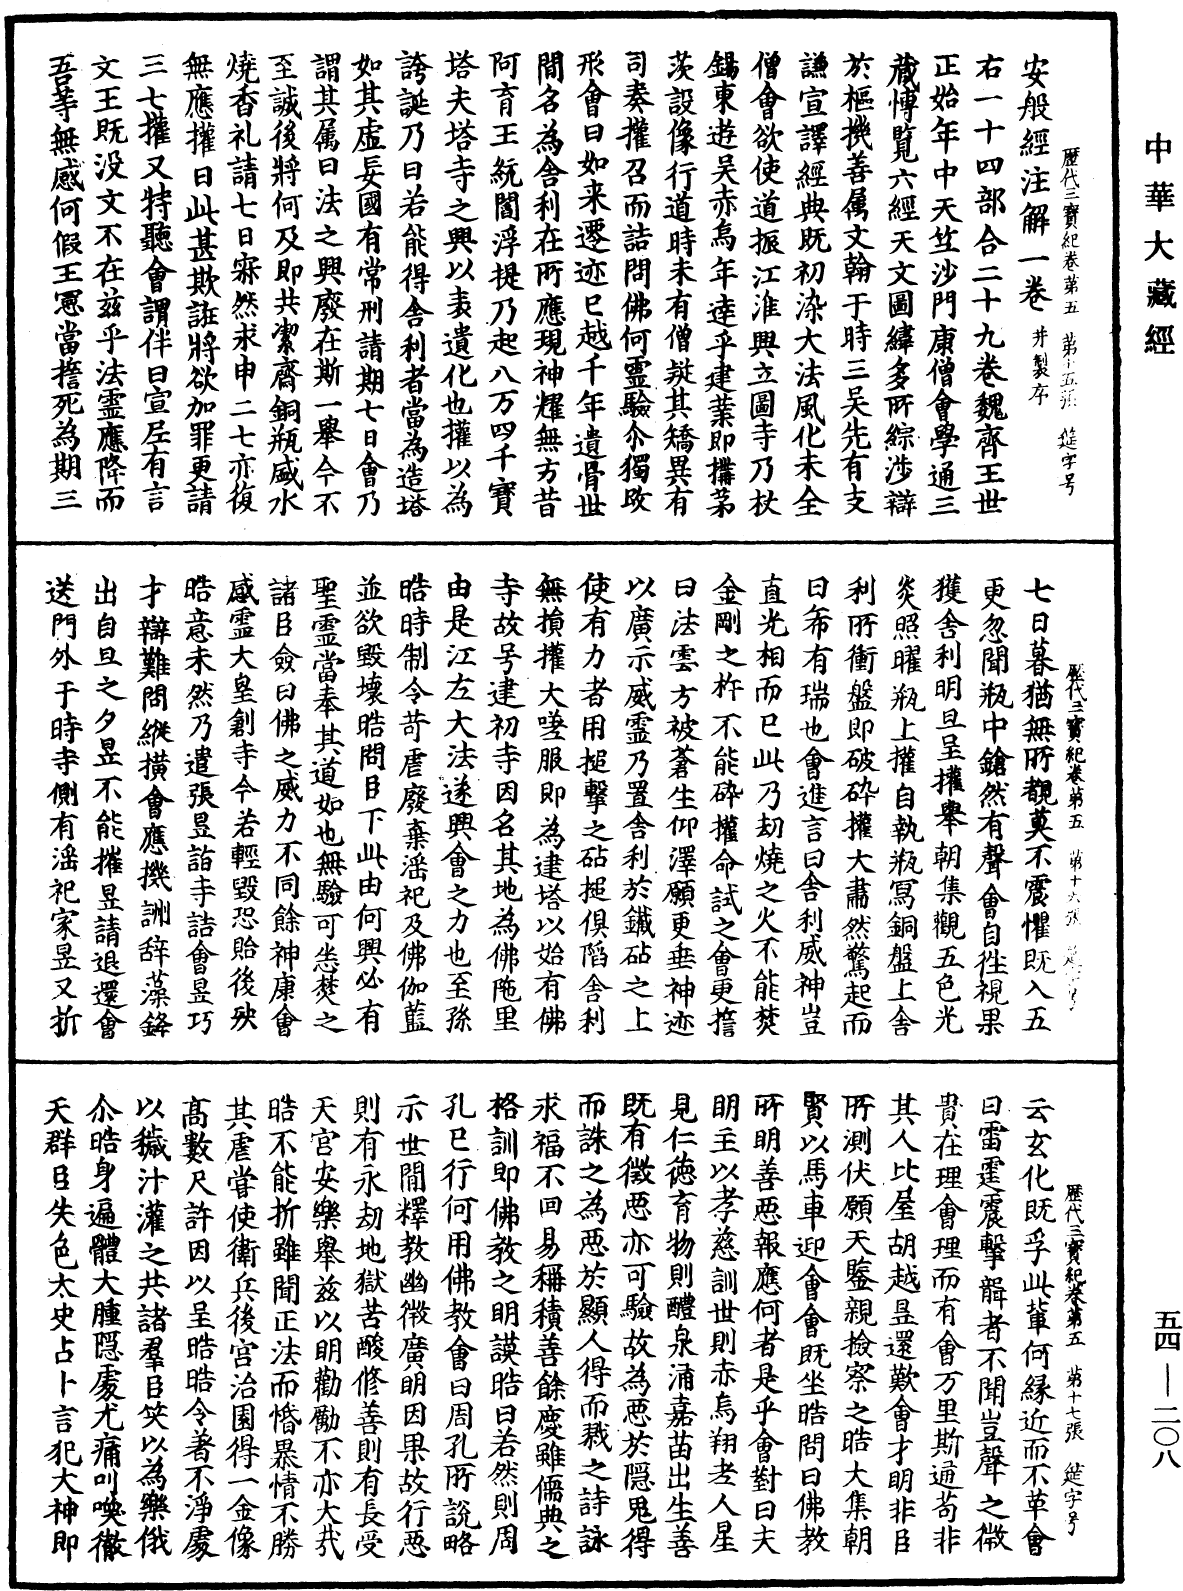 中華大藏經
歷代三寶紀卷第五　第十五張　筵字号
安般經注解一卷并製序
右一十四部合二十九卷魏齊王世
正始年中天竺沙門康僧會學通三
藏博覽六經天文圖緯多所綜涉辯
於樞機善属文翰于時三吳先有支
謙宣譯經典既初染大法風化未全
僧會欲使道振江淮興立圖寺乃杖
錫東遊吳赤烏年達乎建業即搆茅
茨設像行道時未有僧疑其矯異有
司奏權召而詰問佛何靈驗尒獨改
形會曰如来遷迹已越千年遺骨世
間名為舍利在所應現神耀無方昔
阿育王統閻浮提乃起八万四千寶
塔夫塔寺之興以表遺化也權以為
誇誕乃曰若能得舍利者當為造塔
如其虛妄國有常刑請期七日會乃
謂其属曰法之興廢在斯一舉今不
至誠後將何及即共潔齋銅瓶盛水
燒香礼請七日寂然求申二七亦復
無應權曰此甚欺誑將欲加罪更請
三七權又特聽會謂伴曰宣尼有言
文王既没文不在兹乎法靈應降而
吾等無感何假王憲當擔死為期三
歷代三寶紀卷第五　第十六張
七日暮猶無所覩莫不震懼既入五
更忽聞瓶中鎗然有聲會自往視果
獲舍利明旦呈權舉朝集觀五色光
炎照曜瓶上權自執瓶寫銅盤上舍
利所衝盤即破碎權大肅然驚起而
曰希有瑞也會進言曰舍利威神豈
直光相而已此乃劫燒之火不能焚
金剛之杵不能碎權命試之會更擔
曰法雲方被蒼生仰澤願更垂神迹
以廣示威靈乃置舍利於鐵砧之上
使有力者用搥擊之砧搥俱陷舍利
無損權大嗟服即為建塔以始有佛
寺故号建初寺因名其地為佛陁里
由是江左大法遂興會之力也至孫
晧時制令苛虐廢棄淫祀及佛伽藍
並欲毀壞晧問曰下此由何興必有
聖靈當奉其道如也無驗可悉焚之
諸臣僉曰佛之威力不同餘神康會
感靈大皇創寺今若輕毀恐貽後殃
晧意未然乃遣張昱詣寺詰會昱巧
才辯難問縱橫會應機詶辞藻鋒
出自旦之夕昱不能摧昱請退還會
送門外于時寺側有淫祀家昱又折
歷代三寶紀卷第五　第十七張　筵字号
云玄化既孚此輩何緣近而不革會
曰雷霆震擊聾者不聞豈聲之微
貴在理會理而有會万里斯通苟非
其人比屋胡越昱還歎會才明非臣
所測伏願天鑒親撿察之晧大集朝
賢以馬車迎會會既坐晧問曰佛教
所明善惡報應何者是乎會對曰夫
明主以孝慈訓世則赤烏翔老人星
見仁德育物則醴泉涌嘉苗出生善
既有徵惡亦可驗故為惡於隱鬼得
而誅之為惡於顯人得而戮之詩詠
求福不回易稱積善餘慶雖儒典之
格訓即佛教之明謨晧曰若然則周
孔已行何用佛教會曰周孔所說略
示世間釋教幽徵廣明因果故行惡
則有永劫地獄苦酸修善則有長受
天宮安樂舉兹以明勸勵不亦大㢤
晧不能折雖聞正法而惛暴情不勝
其虐嘗使衛兵後宮治園得一金像
高數尺許因以呈晧晧令著不淨處
以穢汁灌之共諸羣臣笑以為樂俄
尒晧身遍體大腫隱處尤痛叫喚徹
天群臣失色太史占卜言犯大神即
五四—二〇八